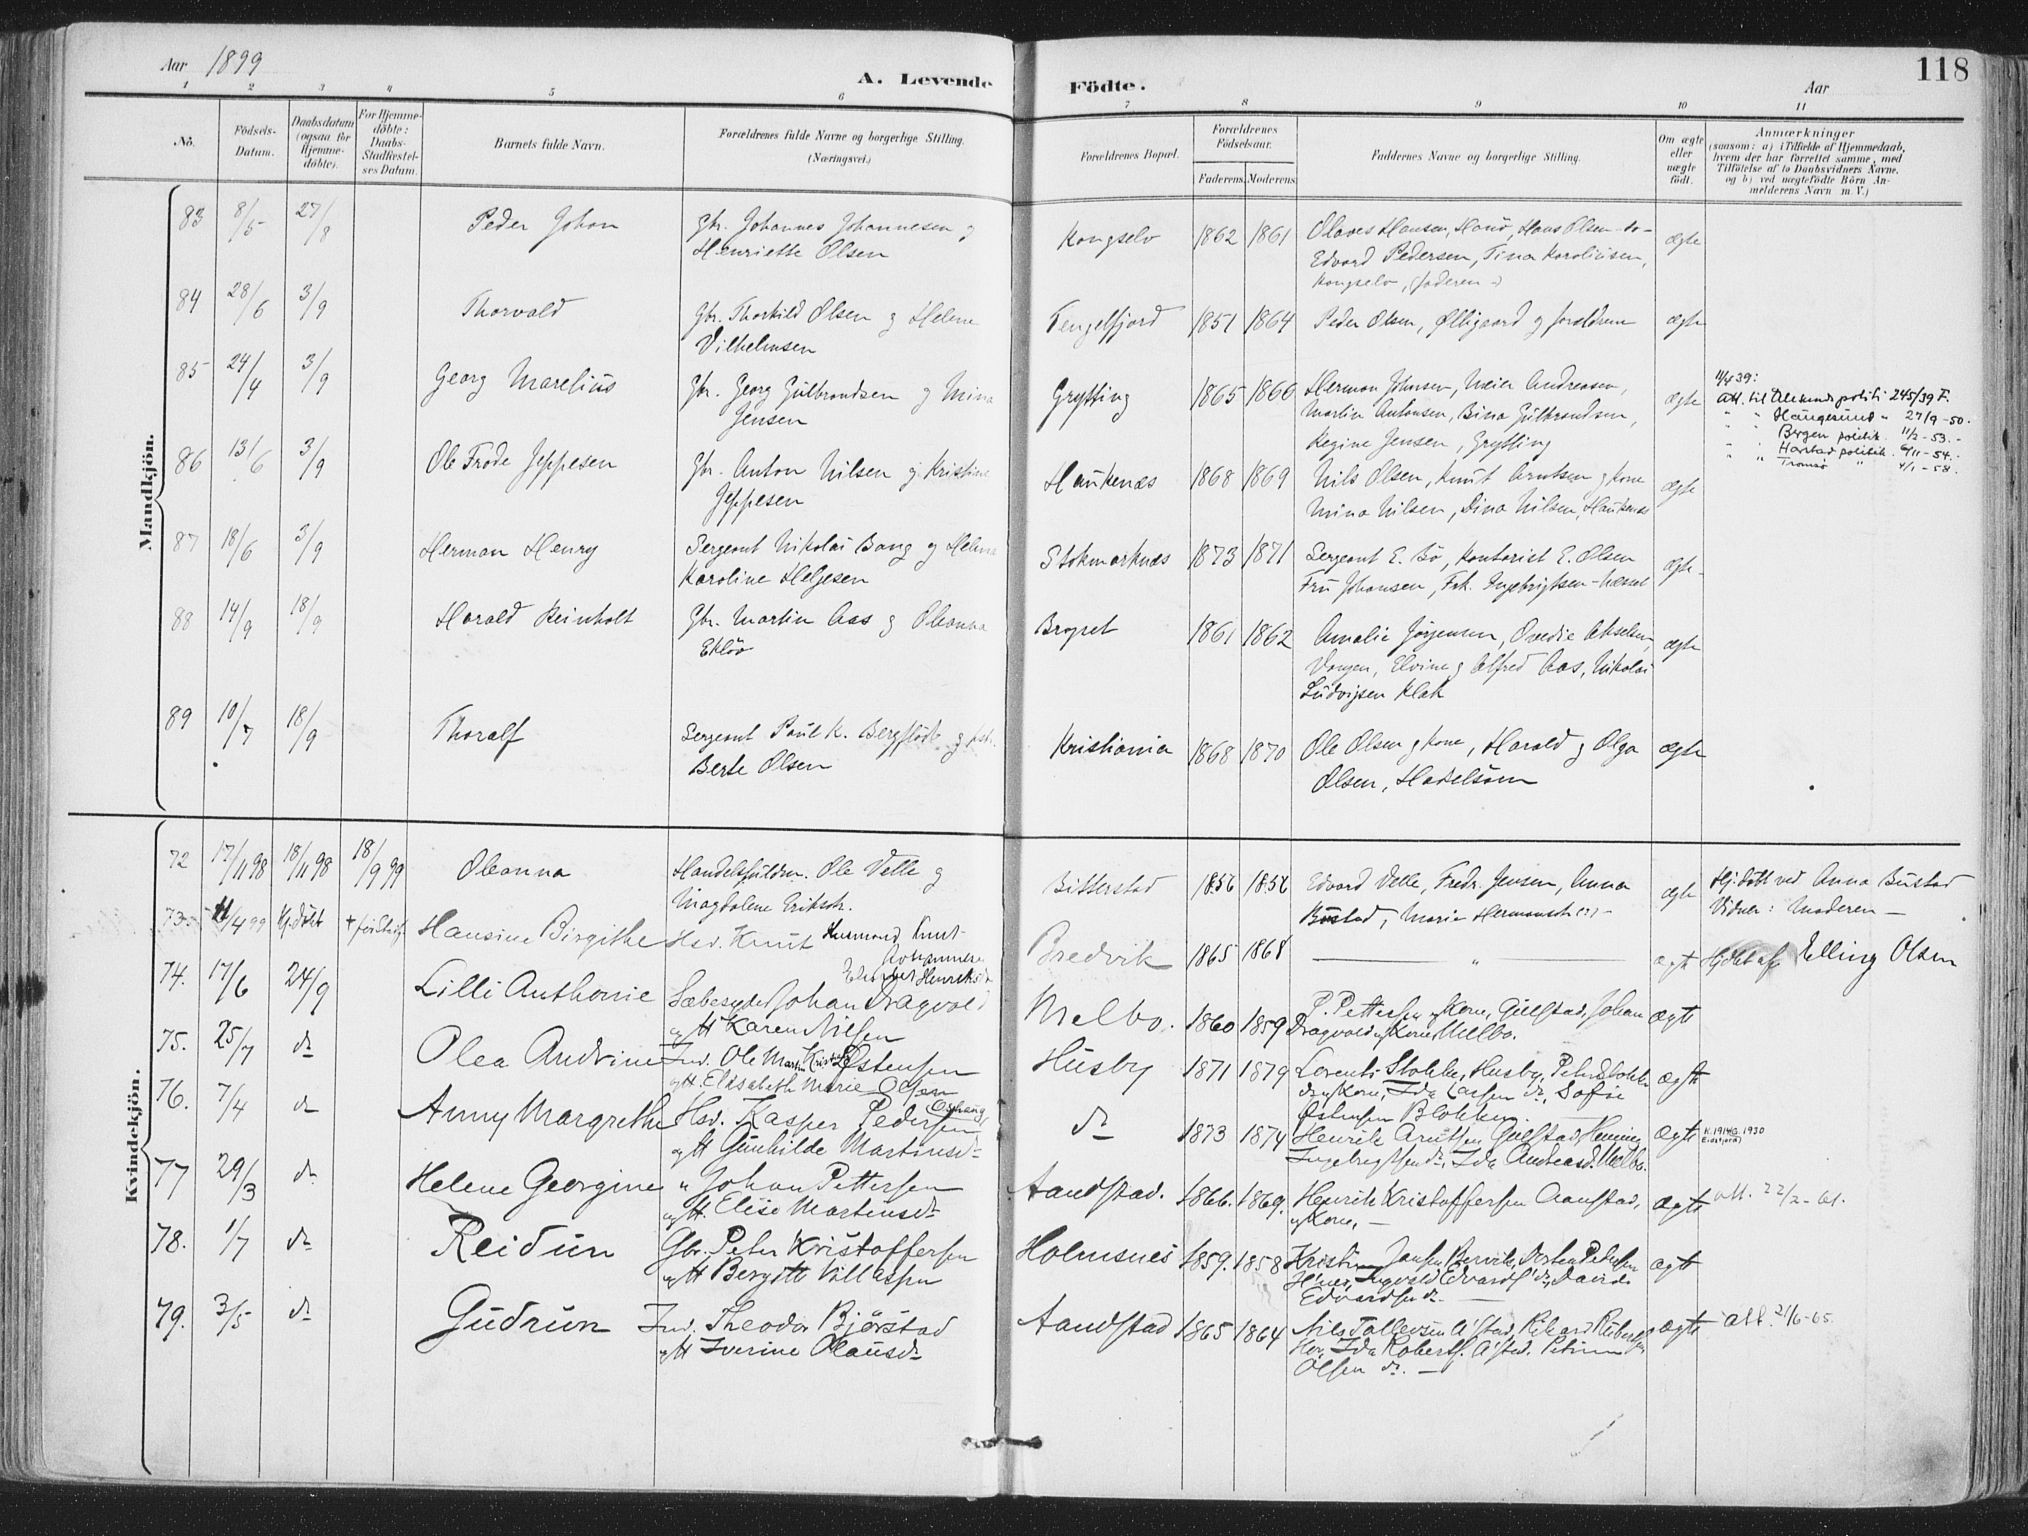 Aar 1899
A. Levende Födte.
Aar
118
1 2 3 4 5 6 7 8 9 10 11
No.
Födsels-Datum.
Daabsdatum (ogsaa for Hjemmedöbte).
For Hjemmedöbte: Daabs-Stadfæstelses Datum.
Barnets fulde Navn.
Forældrenes fulde Navne og borgerlige Stilling. (Næringsvei.)
Forældrenes Bopæl.
Forældrenes Födselsaar.
Faderens. Moderens.
Faddernes Navne og borgerlige Stilling.
Om ægte eller uægte födt.
Anmærkninger
(saasom: a) i Tilfælde af Hjemmedaab,
hvem der har forrettet samme, med
Tilföielse af to Daabsvidners Navne,
og b) ved uægtefödte Börn Anmelderens Navn m. V.)
Mandkjön.
83 8/5 27/8 Peder Johan Gbr. Johannes Johannesen og
Henriette Olsen
Kongselv 1862 1861 Olaves Hansen, Hanø, Hans Olsen -do-
Edvard Pedersen, Tina Karoliusen,
Kongselv, (faderen -) ægte
84 28/6 3/9 Thorvald Gbr. Thorkild Olsen og Helene
Vilhelmsen
Tengelfjord 1851 1864 Peder Olsen, Ølligaard og forældrene ægte
85 24/4 3/9 Georg Marelius Gbr. Georg Gulbrandsen og Mina
Jensen
Grytting 1865 1866 Herman Johnsen, Meier Andreasen,
Martin Antonsen, Bina Gulbrandsen,
Regine Jensen, Grytting ægte
11/4 39:
Att. til Ålesund politi 245/39 F.
" " Haugesund " 27/9-50.
" " Bergen politik. 11/2-53.-
" " Harstad politik. 6/11-54.-
" " Tromsø " 4/1-58.
86 13/6 3/9 Ole Frode Jeppesen Gbr. Anton Nilsen og Kristine
Jeppesen
Haukenæs 1868 1869 Nils Olsen, Knut Arntsen og kone
Mina Nilsen, Dina Nilsen, Haukenæs ægte
87 18/6 3/9 Herman Henry Sergeant Nikolai Bang og Helena
Karoline Helgesen
Stokmarknæs 1873 1871 Sergeant E. Bø, Kontorist E. Olsen
Fru Johansen, Frk. Ingebrigtsen - ægte
88 14/9 18/9 Harald Reinholt Gbr. Martin Aas og Oleanna
Ekløv
1861 1862 Amalie Jørgensen, Ovedie Akselsen,
Vangen, Elvine og Alfred Aas, Nikolai
Ludvigsen Klak ægte
89 10/7 18/9 Thoralf Sergeant Paul K. Bergflødt og hstr.
Berte Olsen
Kristiania 1868 1870 Ole Olsen og kone, Harald og Olga
Olsen, Hadelsøen ægte
Kvindekjön.
72 17/11 98 18/11 98 18/9 99 Oleanna Handelsfuldm. Ole Velle og
Magdalene Erikstr.
Bitterstad 1856 1856 Edvard Velle, Fredr. Jensen, Anna
Bustad, Marie Hermanstr (:) - ægte
Hj. døbt ved Anna Bustad
Vidner: Moderen -
73. /4 99 Hj. døbt Hansine Birgithe Hsv. Knut Husmand Knut
Henriksd
Bredvik 1865 1868 " ægte Hj.døbt af Elling Olsen
74. 17/6 24/9 Lilli Anthonie Sæbesyder Johan Dragvold
og H Karen Nilsen
Melbo. 1860 1859 P. Pettersen og Kone, Gulstad, Johan
Dragvold og Kone Melbo. ægte
75. 25/7 do Olea Andrine Ind. Ole Martin Kristian Østensen
og H. Elisabeth Marie Olsen
Husby 1871 1879 Lorents Stokke, Husby, Peter Stokke
do og Kone, Ida Larsen do, Sofie
Østensen Blokken. - ægte
76. 7/4 do Anny Margrethe Hsv. Kasper Pedersen
og H Gunhilde Martinsd.
do 1873 1874 Henrik Arntsen Gulstad, Henning
Ingebrigtsen do, Ida Andreasd. Melbo. ægte
77 29/3 do Helene Georgine " Johan Pettersen
og H. Elise Martensd.
Aandstad. 1866. 1869. Henrik Kristoffersen Aanstad,
og Kone. - ægte att. 22/2-61.
78. 1/7 do Reidun Gbr. Peter Kristoffersen
og H Bergitte Villassen
Holmsnes 1859. 1858 ægte
Edvardsen do -
79. 3/5 do Gudrun Ind. Theodor Bjørstad
og H Iverine Olausd.
Aandstad 1865 1864 Nils Tollevsen A'stad, Rikard Robertsen
Ida Roberts. A'stad. Petrine
Olsen do. - ægte att. 21/6-65.